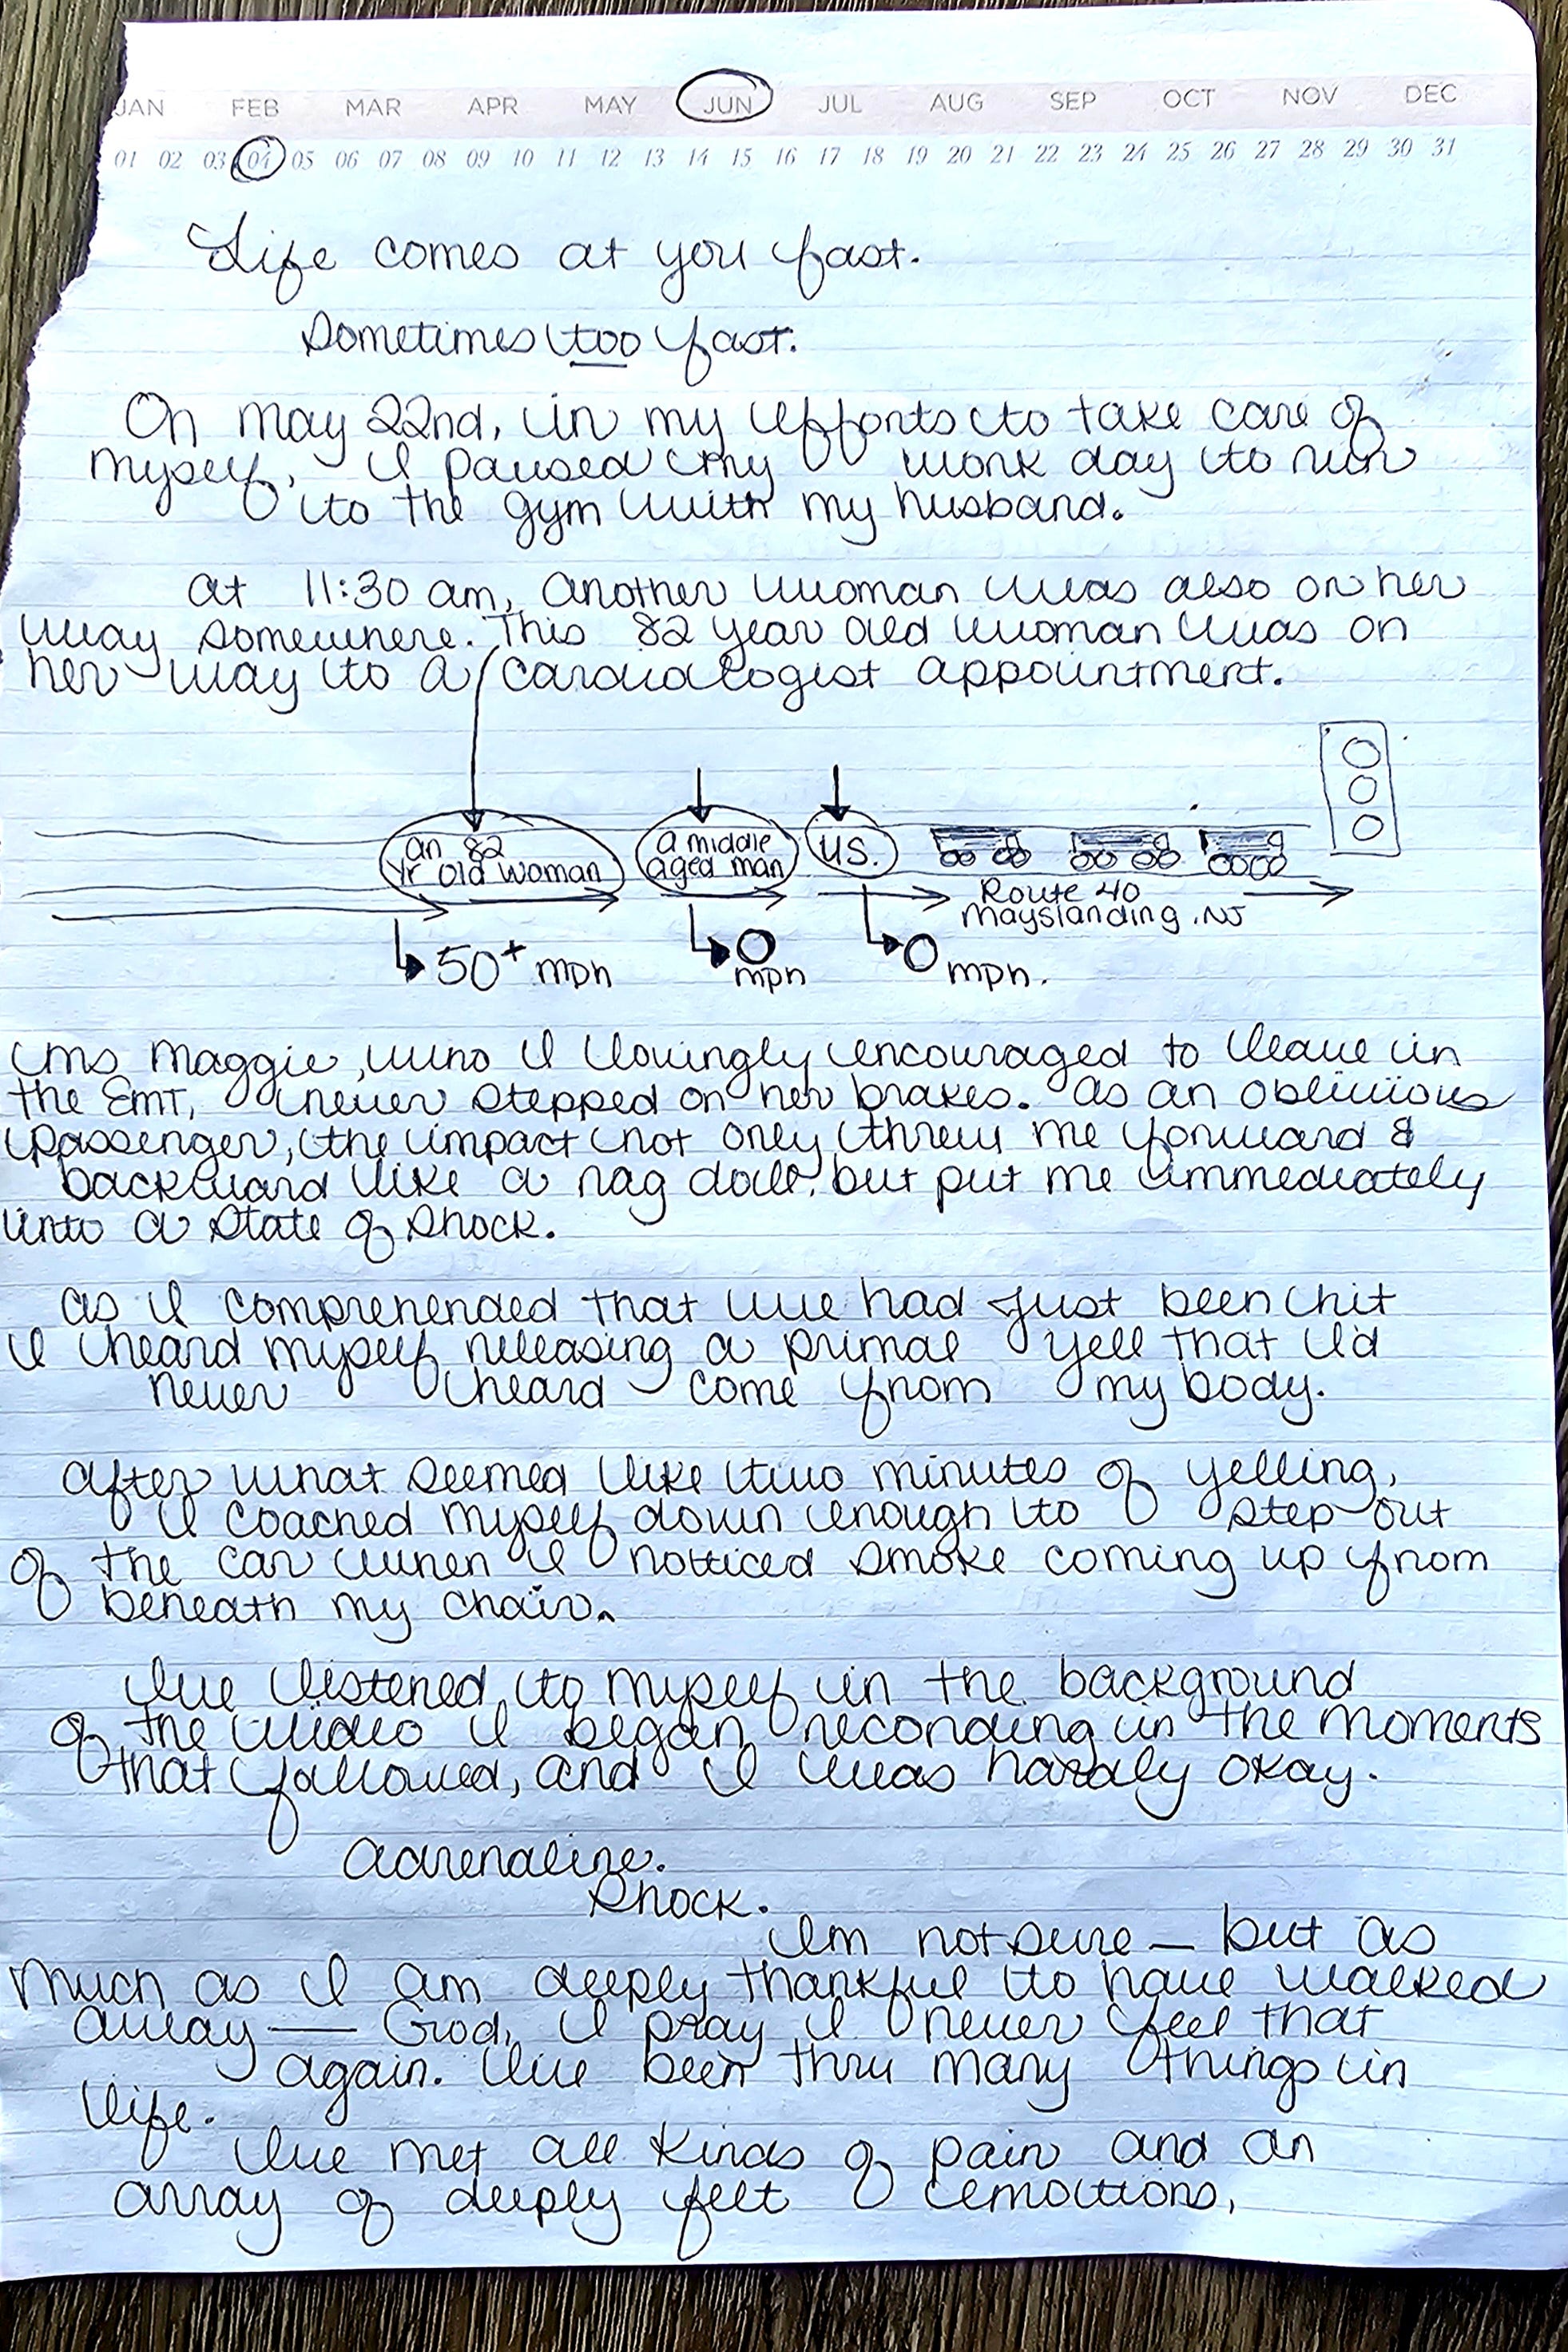 JAN FEB MAR APR MAY JUN JUL AUG SEP OCT NOV DEC
01 02 03 04 05 06 07 08 09 10 11 12 13 14 15 16 17 18 19 20 21 22 23 24 25 26 27 28 29 30 31
Life comes at you fast.
Sometimes too fast.
On May 22nd, in my efforts to take care of
myself, I paused my work day to run
to the gym with my husband.
At 11:30 am, another woman was also on her
way somewhere. This 82 year old woman was on
her way to a cardiologist appointment.
an 82
yr old woman
a middle
aged man
us.
Route 40
Mayslanding, NJ
50+ mph
0
mph
0 mph.
Ms Maggie, who I lovingly encouraged to leave in
the EMT, never stepped on her brakes. As an oblivious
passenger, the impact not only threw me forward &
backward like a rag doll, but put me immediately
into a state of shock.
As I comprehended that we had just been hit
I heard myself releasing a primal yell that I'd
never heard come from my body.
After what seemed like two minutes of yelling,
I coached myself down enough to step out
of the car when I noticed smoke coming up from
beneath my chair.
I've listened to myself in the background
of the video I began recording in the moments
that followed, and I was hardly okay.
Adrenaline.
Shock.
I'm not sure — but as
much as I am deeply thankful to have walked
away — God, I pray I never feel that
again. I've been thru many things in
life.
I've met all kinds of pain and an
array of deeply felt emotions,